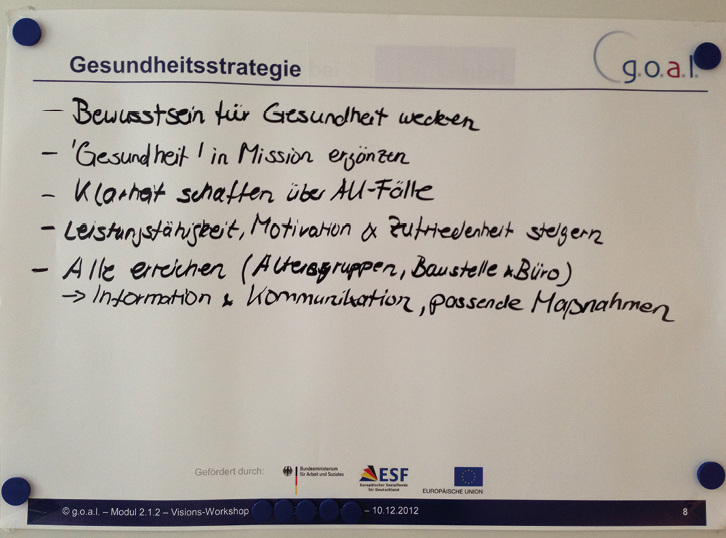 Gesundheitsstrategie
g.o.a.l.
– Bewusstsein für Gesundheit wecken
– 'Gesundheit' in Mission ergänzen
– Klarheit schaffen über AU-Fälle
– Leistungsfähigkeit, Motivation & Zufriedenheit steigern
– Alle erreichen (Altersgruppen, Baustelle & Büro)
→ Information & Kommunikation, passende Maßnahmen
Gefördert durch:
Bundesministerium
für Arbeit und Soziales
ESF
Europäischer Sozialfonds
für Deutschland
EUROPÄISCHE UNION
© g.o.a.l. – Modul 2.1.2 – Visions-Workshop – 10.12.2012
8